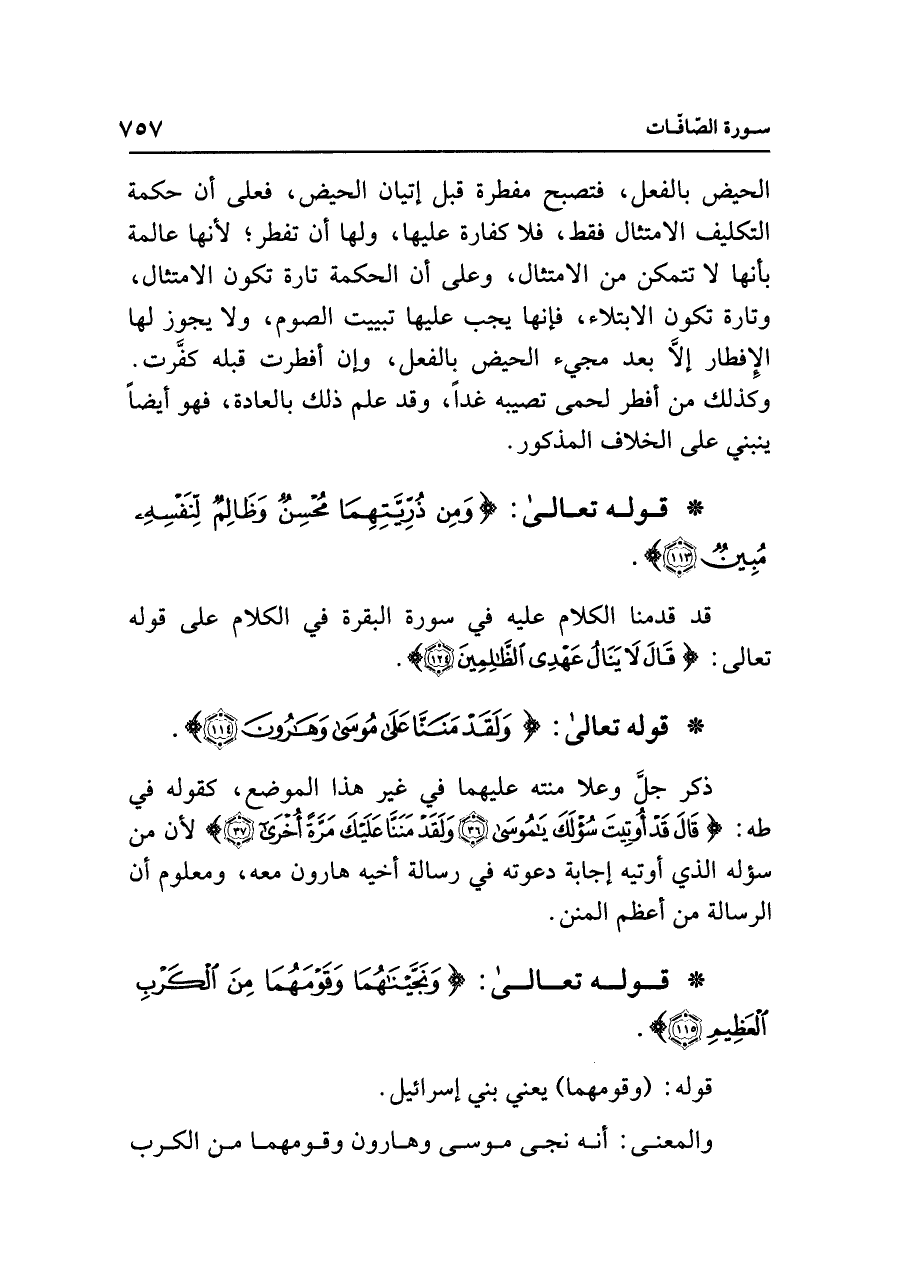 سـورة الصّافّـات ٧٥٧
الحيض بالفعل، فتصبح مفطرة قبل إتيان الحيض، فعلى أن حكمة
التكليف الامتثال فقط، فلا كفارة عليها، ولها أن تفطر؛ لأنها عالمة
بأنها لا تتمكن من الامتثال، وعلى أن الحكمة تارة تكون الامتثال،
وتارة تكون الابتلاء، فإنها يجب عليها تبييت الصوم، ولا يجوز لها
الإِفطار إلاَّ بعد مجيء الحيض بالفعل، وإن أفطرت قبله كفَّرت.
وكذلك من أفطر لحمى تصيبه غداً، وقد علم ذلك بالعادة، فهو أيضاً
ينبني على الخلاف المذكور.
* قـولـه تعـالـىٰ: ﴿ وَمِن ذُرِّيَّتِهِمَا مُحْسِنٌ وَظَالِمٌ لِّنَفْسِهِۦ
مُبِينٌ ١١٣﴾.
قد قدمنا الكلام عليه في سورة البقرة في الكلام على قوله
تعالى: ﴿ قَالَ لَا يَنَالُ عَهْدِى ٱلظَّٰلِمِينَ ١٢٤﴾.
* قوله تعالىٰ: ﴿ وَلَقَدْ مَنَنَّا عَلَىٰ مُوسَىٰ وَهَٰرُونَ ١١٤﴾.
ذكر جلَّ وعلا منته عليهما في غير هذا الموضع، كقوله في
طه: ﴿ قَالَ قَدْ أُوتِيتَ سُؤْلَكَ يَٰمُوسَىٰ ٣٦ وَلَقَدْ مَنَنَّا عَلَيْكَ مَرَّةً أُخْرَىٰٓ ٣٧﴾ لأن من
سؤله الذي أوتيه إجابة دعوته في رسالة أخيه هارون معه، ومعلوم أن
الرسالة من أعظم المنن.
* قـولـه تعـالـىٰ: ﴿ وَنَجَّيْنَٰهُمَا وَقَوْمَهُمَا مِنَ ٱلْكَرْبِ
ٱلْعَظِيمِ ١١٥﴾.
قوله: (وقومهما) يعني بني إسرائيل.
والمعنـى: أنـه نجـى مـوسـى وهـارون وقـومهمـا مـن الكـرب